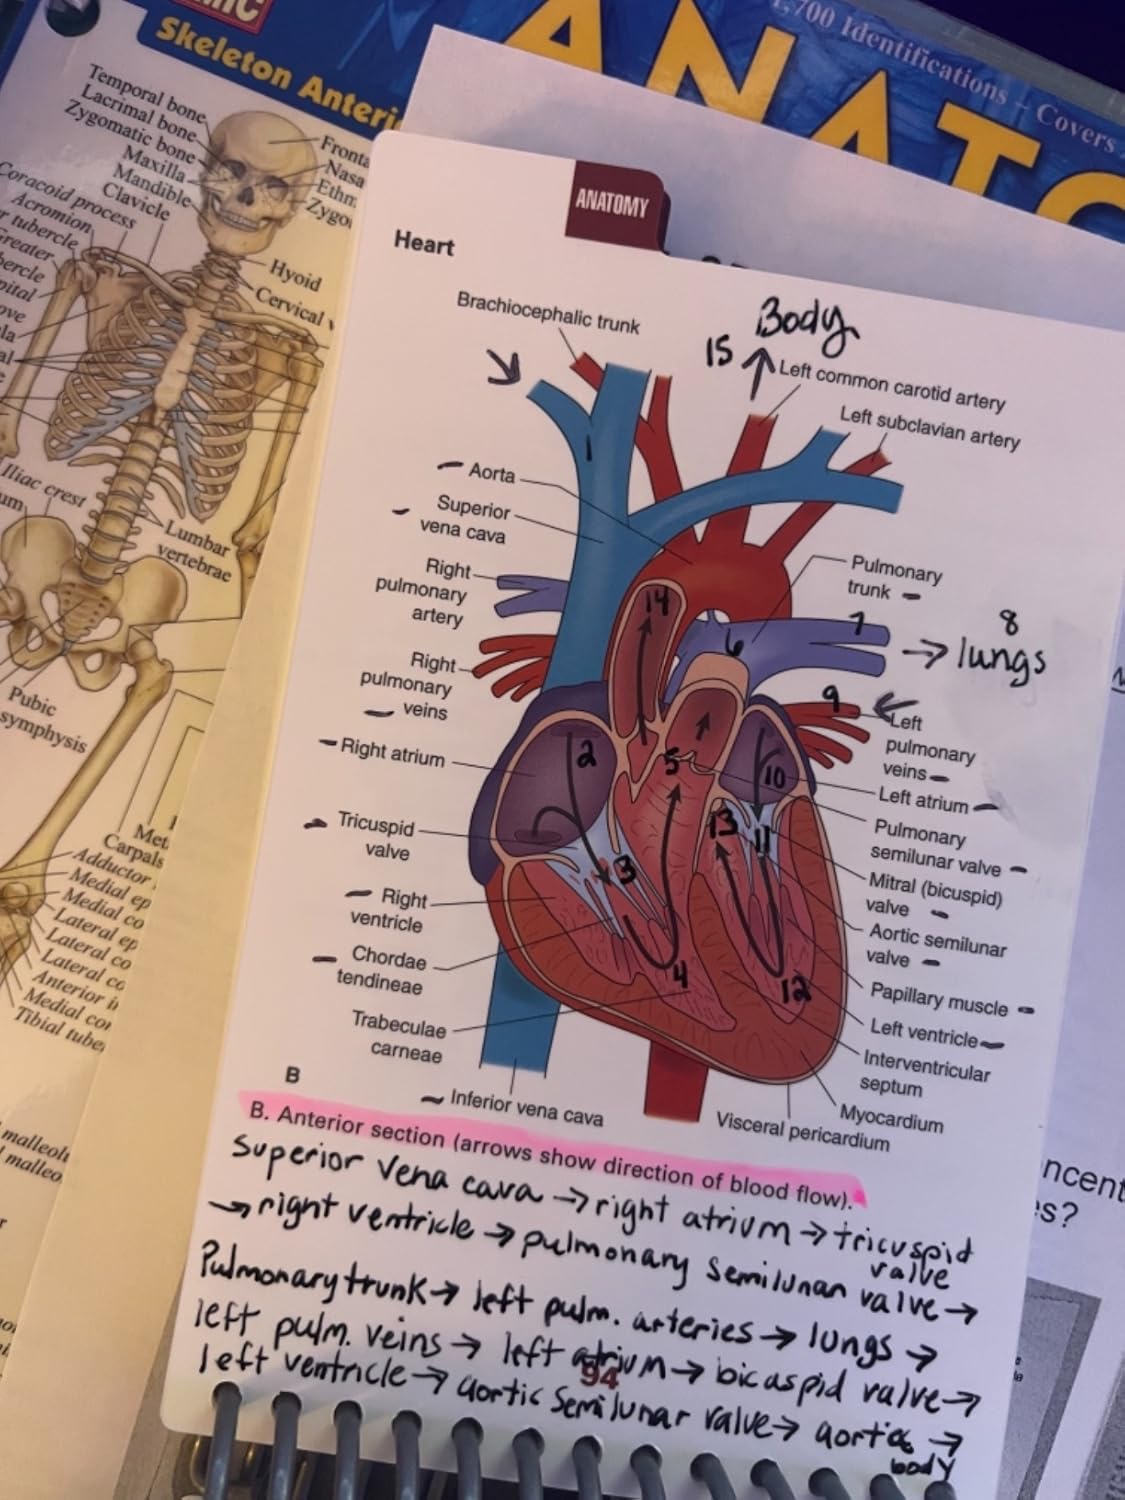 Skeleton Anteri
Temporal bone
Lacrimal bone
Zygomatic bone
Maxilla
Mandible
Clavicle
Coracoid process
Acromion
r tubercle
Greater
bercle
pital
ove
la
al
Iliac crest
um
Pubic
symphysis
Fronta
Nasa
Ethm
Zygo
Hyoid
Cervical v
Lumbar
vertebrae
Met
Carpals
Adductor
Medial ep
Medial co
Lateral ep
Lateral co
Lateral co
Anterior in
Medial con
Tibial tube
malleol
malleo
ANATO
1,700 Identifications – Covers
ANATOMY
Heart
Brachiocephalic trunk
Body
15
Left common carotid artery
Left subclavian artery
1
Aorta
Superior
vena cava
Right
pulmonary
artery
Right
pulmonary
veins
Right atrium
Tricuspid
valve
Right
ventricle
Chordae
tendineae
Trabeculae
carneae
B
Inferior vena cava
Pulmonary
trunk
14
6
7
8
→ lungs
9
Left
pulmonary
veins
Left atrium
Pulmonary
semilunar valve
Mitral (bicuspid)
valve
Aortic semilunar
valve
Papillary muscle
Left ventricle
Interventricular
septum
Myocardium
Visceral pericardium
2
5
10
13
11
3
4
12
B. Anterior section (arrows show direction of blood flow).
Superior vena cava → right atrium → tricuspid
valve
→ right ventricle → pulmonary semilunar valve →
Pulmonary trunk → left pulm. arteries → lungs →
left pulm. veins → left atrium → bicuspid valve →
left ventricle → aortic semilunar valve → aorta →
body
94
ncent
es?